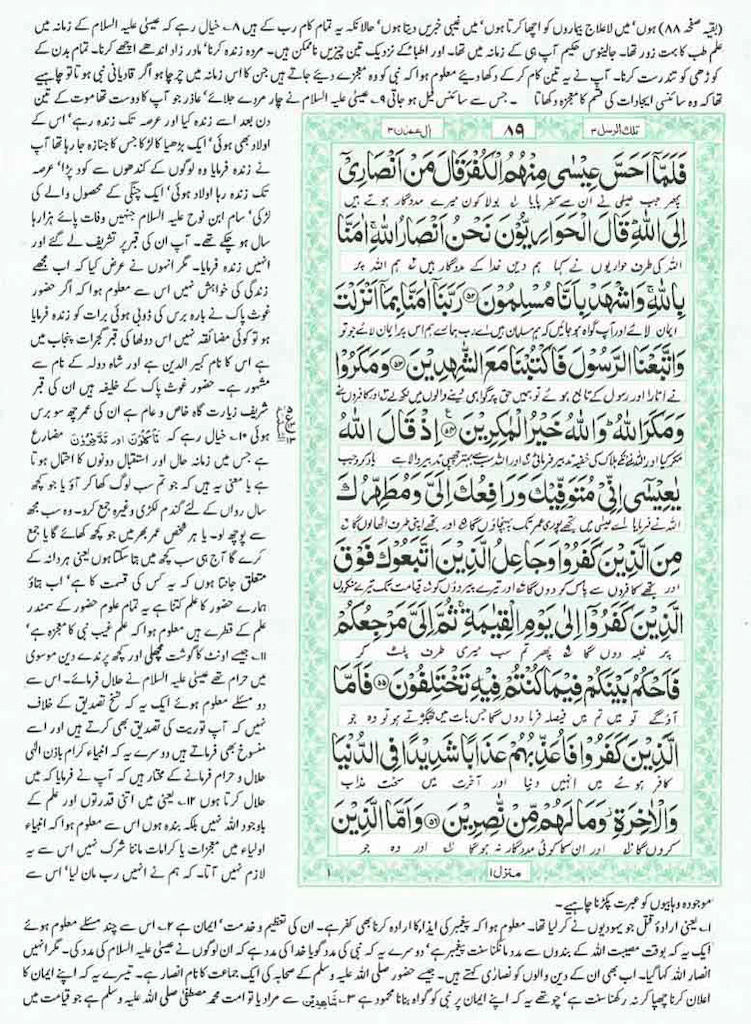 (بقیہ صفحہ ۸۸) ہوں' میں لاعلاج بیماروں کو اچھا کرتا ہوں' میں غیبی خبریں دیتا ہوں' حالانکہ یہ تمام کام رب کے ہیں ۸۔ خیال رہے کہ عیسیٰ علیہ السلام کے زمانہ میں
علم طب کا بہت زور تھا۔ جالینوس حکیم آپ ہی کے زمانہ میں تھا۔ اور اطباء کے نزدیک تین چیزیں ناممکن ہیں۔ مردہ زندہ کرنا' مادر زاد اندھے اچھے کرنا۔ تمام بدن کے
کوڑھی کو تندرست کرنا۔ آپ نے یہ تین کام کر کے دکھا دیئے معلوم ہوا کہ نبی کو وہ معجزے دیئے جاتے ہیں جن کا اس زمانہ میں چرچا ہو اگر قادیانی نبی ہوتا تو چاہیے
تھا کہ وہ سائنسی ایجادات کی قسم کا معجزہ دکھاتا ۔ جس سے سائنس فیل ہو جاتی ۹۔ عیسیٰ علیہ السلام نے چار مردے جلائے' عاذر جو آپ کا دوست تھا موت کے تین
دن بعد اسے زندہ کیا اور عرصہ تک زندہ رہے' اس کے
اولاد بھی ہوئی' ایک بڑھیا کا لڑکا جس کا جنازہ جا رہا تھا آپ
نے زندہ فرمایا وہ لوگوں کے کندھوں سے کود پڑا' عرصہ
تک زندہ رہا اولاد ہوئی' ایک چنگی کے محصول والے کی
لڑکی' سام ابن نوح علیہ السلام جنہیں وفات پائے ہزارہا
سال ہو چکے تھے۔ آپ ان کی قبر پر تشریف لے گئے اور
انہیں زندہ فرمایا۔ مگر انہوں نے عرض کیا کہ اب مجھے
زندگی کی خواہش نہیں اس سے معلوم ہوا کہ اگر حضور
غوث پاک نے بارہ برس کی ڈوبی ہوئی برات کو زندہ فرمایا
ہو تو کوئی مضائقہ نہیں اس دولھا کی قبر گجرات پنجاب میں
ہے اس کا نام کبیر الدین ہے اور شاہ دولہ کے نام سے
مشہور ہے۔ حضور غوث پاک کے خلیفہ ہیں ان کی قبر
شریف زیارت گاہ خاص و عام ہے ان کی عمر چھ سو برس
ہوئی ۱۰۔ خیال رہے کہ تَاْكُلُوْنَ اور تَدَّخِرُوْنَ مضارع
ہے جس میں زمانہ حال اور استقبال دونوں کا احتمال ہوتا
ہے یا معنی یہ ہیں کہ جو تم سب لوگ کھا کر آؤ یا جو کچھ
سال رواں کے لئے گندم لکڑی وغیرہ جمع کرو۔ وہ سب مجھ
سے پوچھ لو۔ یا ہر شخص عمر بھر میں جو کچھ کھائے گا یا جمع
کرے گا آج ہی سب کچھ میں بتا سکتا ہوں یعنی ہر دانہ کے
متعلق جانتا ہوں کہ یہ کس کی قسمت کا ہے' اب بتاؤ
ہمارے حضور کا علم کتنا ہے یہ تمام علوم حضور کے سمندر
علم کے قطرے ہیں معلوم ہوا کہ علم غیب نبی کا معجزہ ہے'
۱۱۔ جیسے اونٹ کا گوشت مچھلی اور کچھ پرندے دین موسوی
میں حرام تھے عیسیٰ علیہ السلام نے حلال فرمائے۔ اس سے
دو مسئلے معلوم ہوئے ایک یہ کہ نسخ تصدیق کے خلاف
نہیں کہ آپ توریت کی تصدیق بھی کرتے ہیں اور اسے
منسوخ بھی فرماتے ہیں دوسرے یہ کہ انبیاء کرام باذن الٰہی
حلال و حرام فرمانے کے مختار ہیں کہ آپ نے فرمایا کہ میں
حلال کرتا ہوں ۱۲۔ یعنی میں اتنی قدرتوں اور علم کے
باوجود اللہ نہیں بلکہ بندہ ہوں اس سے معلوم ہوا کہ انبیاء
اولیاء میں معجزات یا کرامات ماننا شرک نہیں اس سے یہ
لازم نہیں آتا۔ کہ ہم نے انہیں رب مان لیا' اس سے
موجودہ وہابیوں کو عبرت پکڑنا چاہیے۔
تلك الرسل ۳
۸۹
اٰل عمرٰن ۳
فَلَمَّاۤ اَحَسَّ عِیْسٰى مِنْهُمُ الْكُفْرَ قَالَ مَنْ اَنْصَارِیْۤ
پھر جب عیسٰی نے ان سے کفر پایا بولا کون میرے مددگار ہوتے ہیں
اِلَى اللّٰهِؕ قَالَ الْحَوَارِیُّوْنَ نَحْنُ اَنْصَارُ اللّٰهِۚ اٰمَنَّا
اللہ کی طرف حواریوں نے کہا ہم دین خدا کے مددگار ہیں ہم اللہ پر
بِاللّٰهِۚ وَ اشْهَدْ بِاَنَّا مُسْلِمُوْنَ۝۵۲ رَبَّنَاۤ اٰمَنَّا بِمَاۤ اَنْزَلْتَ
ایمان لائے اور آپ گواہ ہو جائیں کہ ہم مسلمان ہیں اے رب ہمارے ہم اس پر ایمان لائے جو تو
وَ اتَّبَعْنَا الرَّسُوْلَ فَاكْتُبْنَا مَعَ الشّٰهِدِیْنَ۝۵۳ وَ مَكَرُوْا
نے اتارا اور رسول کے تابع ہوئے تو ہمیں حق پر گواہی دینے والوں میں لکھ لے اور کافروں نے
وَ مَكَرَ اللّٰهُؕ وَ اللّٰهُ خَیْرُ الْمٰكِرِیْنَ۝۵۴ اِذْ قَالَ اللّٰهُ
مکر کیا اور اللہ نے انکے ہلاک کی خفیہ تدبیر فرمائی اور اللہ سب سے بہتر چھپی تدبیر والا ہے یاد کرو جب
یٰعِیْسٰۤى اِنِّیْ مُتَوَفِّیْكَ وَ رَافِعُكَ اِلَیَّ وَ مُطَهِّرُكَ
اللہ نے فرمایا اے عیسٰی میں تجھے پوری عمر تک پہنچاؤں گا اور تجھے اپنی طرف اٹھا لوں گا
مِنَ الَّذِیْنَ كَفَرُوْا وَ جَاعِلُ الَّذِیْنَ اتَّبَعُوْكَ فَوْقَ
اور تجھے کافروں سے پاک کر دوں گا اور تیرے پیروؤں کو قیامت تک تیرے منکروں
الَّذِیْنَ كَفَرُوْۤا اِلٰى یَوْمِ الْقِیٰمَةِۚ ثُمَّ اِلَیَّ مَرْجِعُكُمْ
پر غلبہ دوں گا پھر تم سب میری طرف پلٹ کر
فَاَحْكُمُ بَیْنَكُمْ فِیْمَا كُنْتُمْ فِیْهِ تَخْتَلِفُوْنَ۝۵۵ فَاَمَّا
آؤ گے تو میں تم میں فیصلہ فرما دوں گا جس بات میں جھگڑتے ہو تو وہ جو
الَّذِیْنَ كَفَرُوْا فَاُعَذِّبُهُمْ عَذَابًا شَدِیْدًا فِی الدُّنْیَا
کافر ہوئے میں انہیں دنیا اور آخرت میں سخت عذاب
وَ الْاٰخِرَةِ٘ وَ مَا لَهُمْ مِّنْ نّٰصِرِیْنَ۝۵۶ وَ اَمَّا الَّذِیْنَ
کروں گا اور ان کا کوئی مددگار نہ ہو گا اور وہ جو
منزل ۱
۱۔ یعنی ارادۂ قتل جو یہودیوں نے کر لیا تھا۔ معلوم ہوا کہ پیغمبر کی ایذا کا ارادہ کرنا بھی کفر ہے۔ ان کی تعظیم و خدمت' ایمان ہے ۲۔ اس سے چند مسئلے معلوم ہوئے
ایک یہ کہ بوقت مصیبت اللہ کے بندوں سے مدد مانگنا سنت پیغمبر ہے' دوسرے یہ کہ نبی کی مدد گویا خدا کی مدد ہے کہ ان لوگوں نے عیسیٰ علیہ السلام کی مدد کی۔ مگر انہیں
انصار اللہ کہا گیا۔ اب بھی ان کے دین والوں کو نصاریٰ کہتے ہیں۔ جیسے حضور صلی اللہ علیہ وسلم کے صحابہ کی ایک جماعت کا نام انصار ہے۔ تیسرے یہ کہ اپنے ایمان کا
اعلان کرنا چھپا کر نہ رکھنا سنت ہے' چوتھے یہ کہ اپنے ایمان پر نبی کو گواہ بنانا محمود ہے ۳۔ شَاهِدِيْنَ سے مراد یا تو امت محمد مصطفیٰ صلی اللہ علیہ وسلم ہے جو قیامت میں